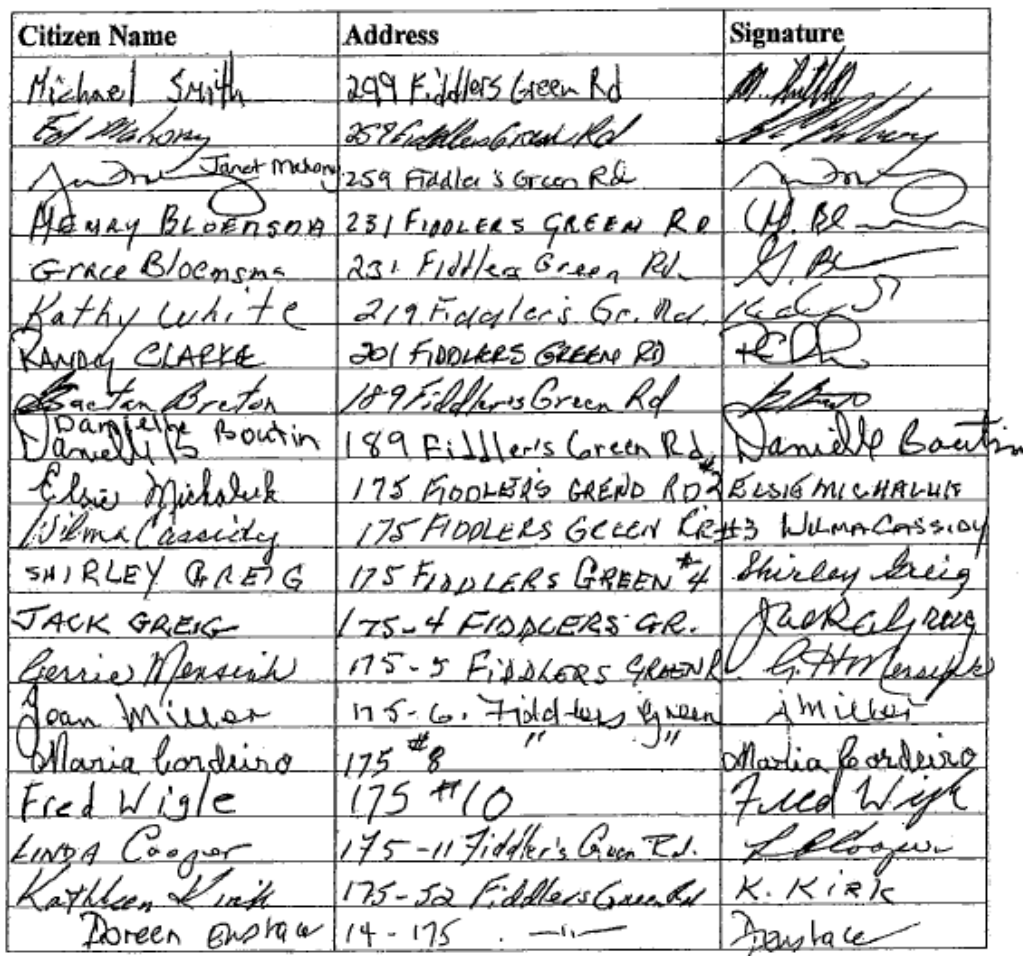 Citizen Name Address Signature
Michael Smith 299 Fiddlers Green Rd
Ed Mahony 259 Fiddlers Green Rd
Janet Mahony 259 Fiddler's Green Rd
HENRY BLOEMSMA 231 FIDDLERS GREEN RD H. Bl
Grace Bloemsma 231 Fiddlers Green Rd. G. Bl
Kathy White 219 Fiddler's Gr. Rd.
RANDY CLARKE 201 FIDDLERS GREEN RD
Gaetan Breton 189 Fiddler's Green Rd
Danielle Boutin 189 Fiddler's Green Rd. Danielle Boutin
Elsie Michaluk 175 FIDDLER'S RD 2 ELSIE MICHALUK
Wilma Cassidy 175 FIDDLERS GREEN #3 WILMA CASSIDY
SHIRLEY GREIG 175 FIDDLERS GREEN #4 Shirley Greig
JACK GREIG 175-4 FIDDLERS GR. Jack Greig
Gerrie 175-5 FIDDLERS GREEN R. G. H.
Joan Miller 175-6. Fiddlers Green J Miller
Maria Cordeiro 175 #8 " " Maria Cordeiro
Fred Wigle 175 #10 Fred Wigle
LINDA Cooper 175-11 Fiddler's Green Rd. Cooper
Kathleen Kirk 175-52 Fiddlers Green Rd K. KIRK
Doreen Eustace 14-175 -"- Eustace